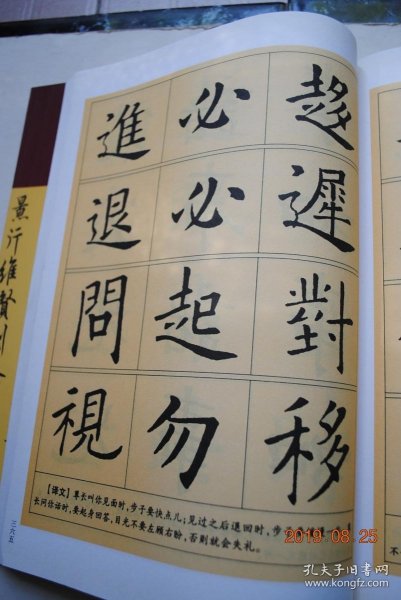 進必趍
退必遲
問起對
視勿移
【译文】尊长叫你见面时，步子要快点儿；见过之后退回时，步子
长问你话时，要起身回答，目光不要左顾右盼，否则就会失礼。
景行維賢
2019.08.25
孔夫子旧书网
www.kongfz.com